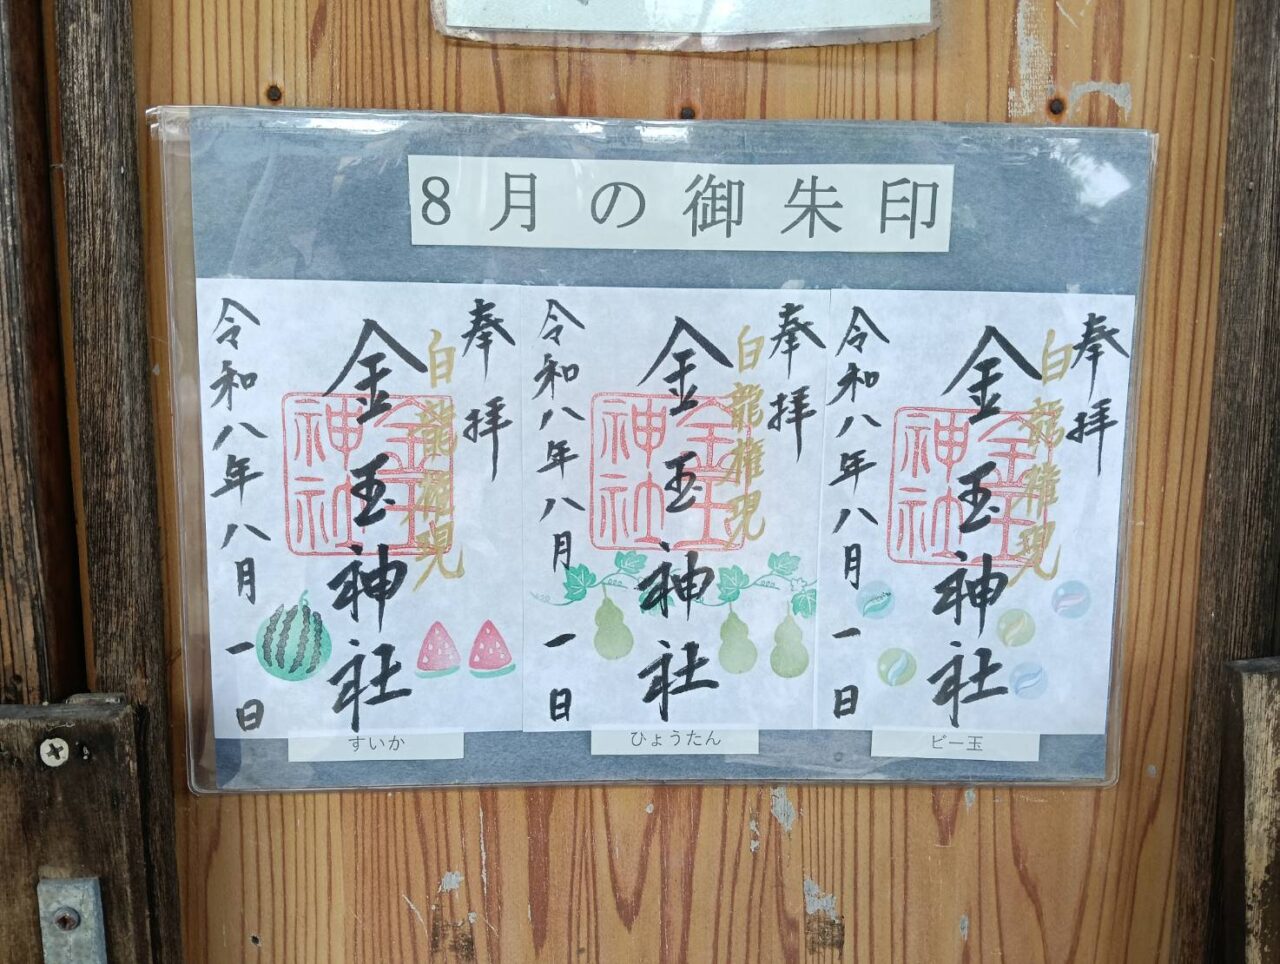 8月の御朱印
奉拝
白龍権現
金玉神社
金玉神社
令和八年八月一日
すいか
奉拝
白龍権現
金玉神社
金玉神社
令和八年八月一日
ひょうたん
奉拝
白龍権現
金玉神社
金玉神社
令和八年八月一日
ビー玉